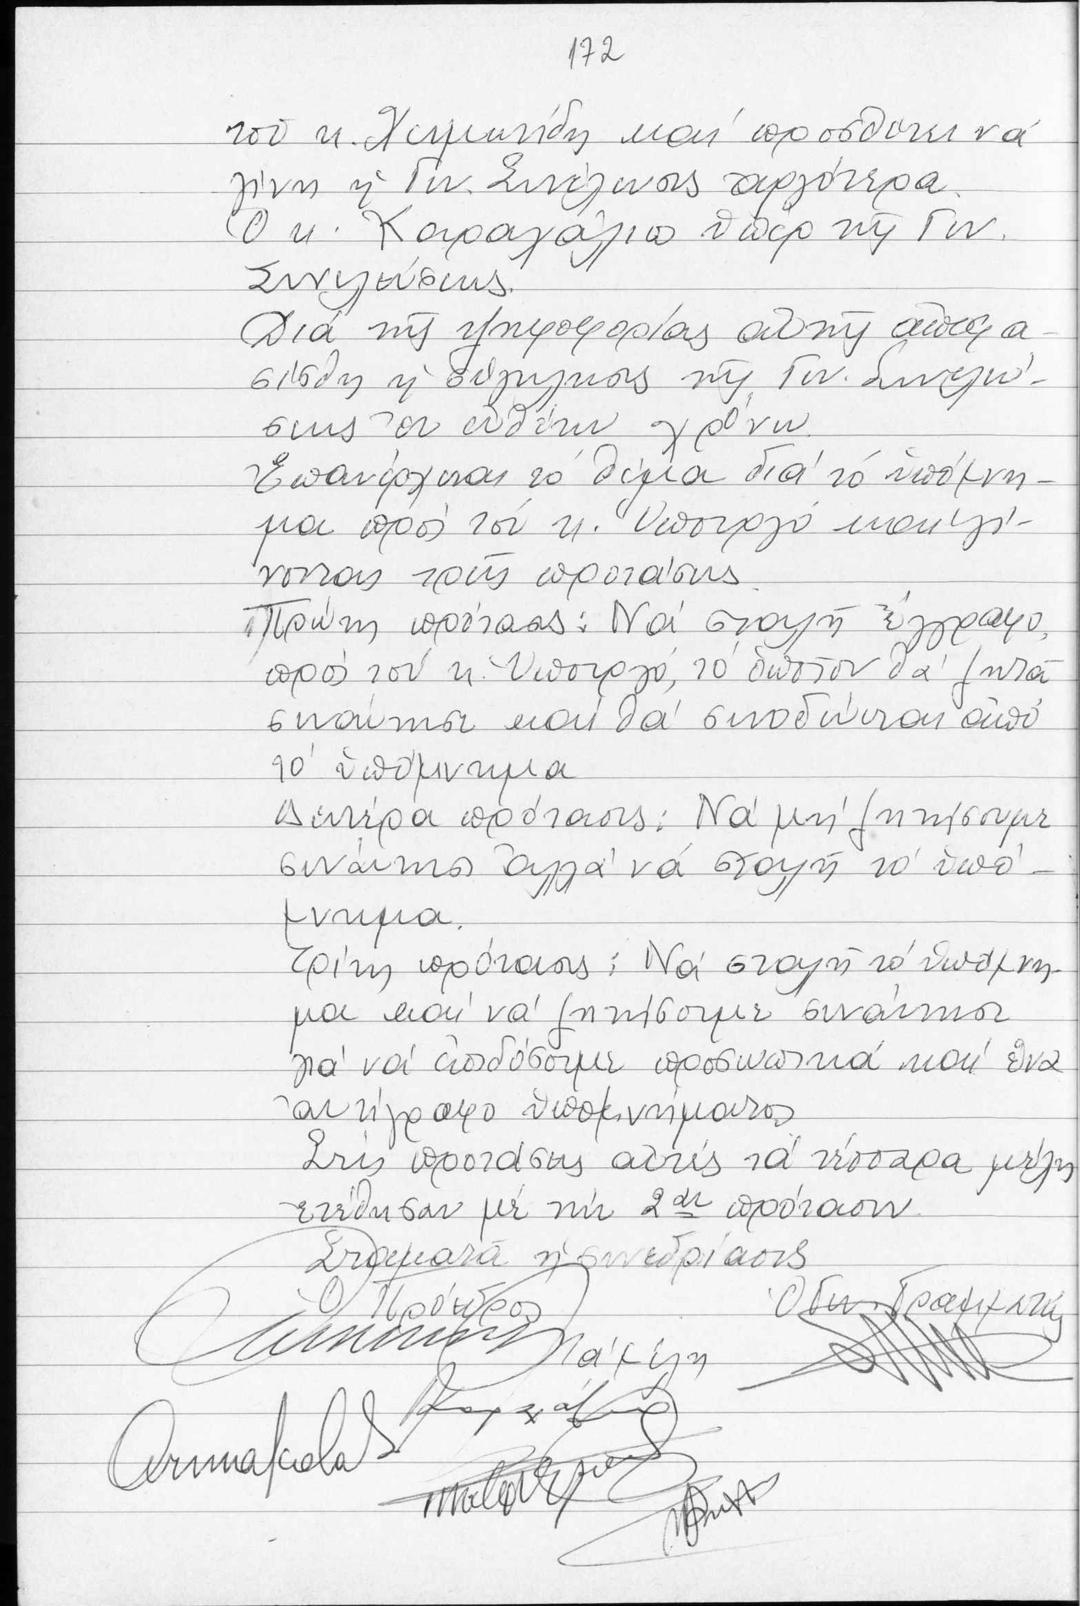 172
τοῦ κ. καὶ προσθέτει νὰ
γίνη ἡ Γεν. Συνέλευσις ἀργότερα.
Ὁ κ. Καραγάλιο ὑπὲρ τῆς Γεν.
Συνελεύσεως.
Διὰ τῆς ψηφοφορίας αὐτῆς ἀπεφα-
σίσθη ἡ σύγκλησις τῆς Γεν. Συνελεύ-
σεως ἐν εὐθέτω χρόνω.
Ἐπανέρχεται τὸ θέμα διὰ τὸ ὑπόμνη-
μα πρὸς τὸν κ. Ὑπουργὸ καὶ γί-
νονται τρεῖς προτάσεις.
Πρώτη πρότασις: Νὰ σταλῆ ἔγγραφο,
πρὸς τὸν κ. Ὑπουργό, τὸ ὁποῖον θὰ ζητᾶ
συνάντησι καὶ θὰ συνοδεύεται ἀπὸ
τὸ ὑπόμνημα
Δευτέρα πρότασις: Νὰ μὴ ζητήσουμε
συνάντησι ἀλλὰ νὰ σταλῆ τὸ ὑπό-
μνημα.
Τρίτη πρότασις: Νὰ σταλῆ τὸ ὑπόμνη-
μα καὶ νὰ ζητήσουμε συνάντησι
γιὰ νὰ ἐπιδόσουμε προσωπικὰ καὶ ἕνα
ἀντίγραφο ὑπομνήματος
Στὶς προτάσεις αὐτὲς τὰ τέσσαρα μέλη
ἐτέθησαν μὲ τὴν 2αν πρότασιν.
Σταματᾶ ἡ συνεδρίασις
Ὁ Πρόεδρος Ὁ Γεν. Γραμματεύς
Τὰ μέλη